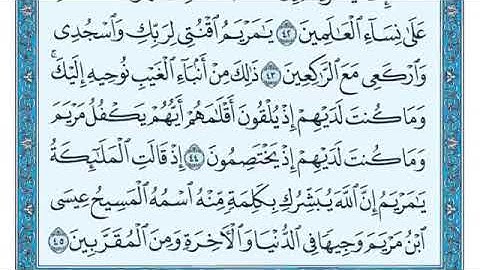 عَلَىٰ نِسَاءِ الْعَالَمِينَ ٤٢ يَا مَرْيَمُ اقْنُتِي لِرَبِّكِ وَاسْجُدِي
وَارْكَعِي مَعَ الرَّاكِعِينَ ٤٣ ذَٰلِكَ مِنْ أَنبَاءِ الْغَيْبِ نُوحِيهِ إِلَيْكَ ۚ
وَمَا كُنتَ لَدَيْهِمْ إِذْ يُلْقُونَ أَقْلَامَهُمْ أَيُّهُمْ يَكْفُلُ مَرْيَمَ
وَمَا كُنتَ لَدَيْهِمْ إِذْ يَخْتَصِمُونَ ٤٤ إِذْ قَالَتِ الْمَلَائِكَةُ
يَا مَرْيَمُ إِنَّ اللَّهَ يُبَشِّرُكِ بِكَلِمَةٍ مِّنْهُ اسْمُهُ الْمَسِيحُ عِيسَى
ابْنُ مَرْيَمَ وَجِيهًا فِي الدُّنْيَا وَالْآخِرَةِ وَمِنَ الْمُقَرَّبِينَ ٤٥